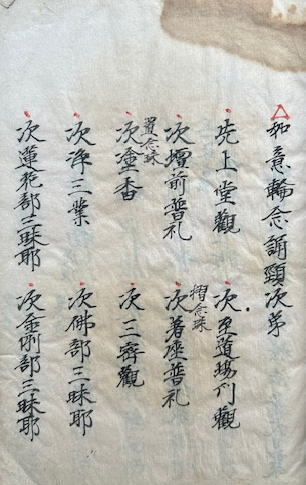 如意輪念誦頸次第
先上堂觀 次至道場行觀
摺念珠
次壇前普礼 次著座普礼
置念珠
次塗香 次三密觀
次浄三業 次佛部三昧耶
次蓮花部三昧耶 次金剛部三昧耶